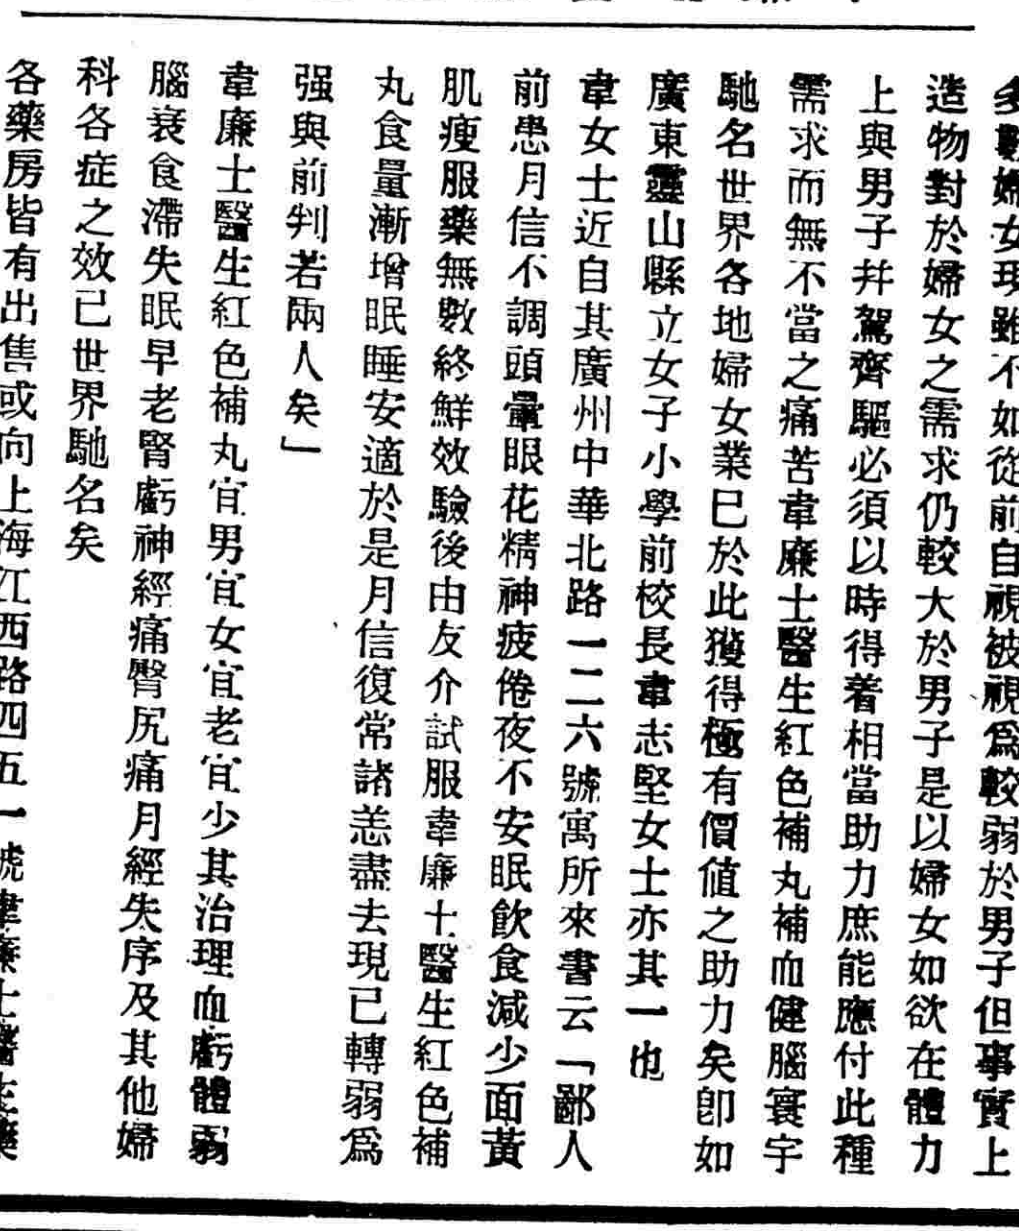 多數婦女現雖不如從前自視被視爲較弱於男子但事實上
造物對於婦女之需求仍較大於男子是以婦女如欲在體力
上與男子幷駕齊驅必須以時得着相當助力庶能應付此種
需求而無不當之痛苦韋廉士醫生紅色補丸補血健腦寰宇
馳名世界各地婦女業巳於此獲得極有價値之助力矣卽如
廣東靈山縣立女子小學前校長韋志堅女士亦其一也
韋女士近自其廣州中華北路一二六號寓所來書云「鄙人
前患月信不調頭暈眼花精神疲倦夜不安眠飮食減少面黃
肌瘦服藥無數終鮮效驗後由友介試服韋廉士醫生紅色補
丸食量漸增眠睡安適於是月信復常諸恙盡去現已轉弱爲
强與前判若兩人矣」
韋廉士醫生紅色補丸宜男宜女宜老宜少其治理血虧體弱
腦衰食滯失眠早老腎虧神經痛臀尻痛月經失序及其他婦
科各症之效已世界馳名矣
各藥房皆有出售或向上海江西路四五一號韋廉士醫生藥